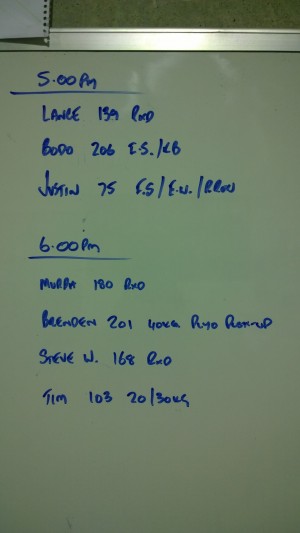 5.00pm
LANCE 139 RXD
BODO 206 E.S./KB
JUSTIN 75 E.S/E.W./RROW
6.00pm
MURPH 180 RXD
BRENDEN 201 40KG
STEVE W. 168 RXD
TIM 103 20/30KG